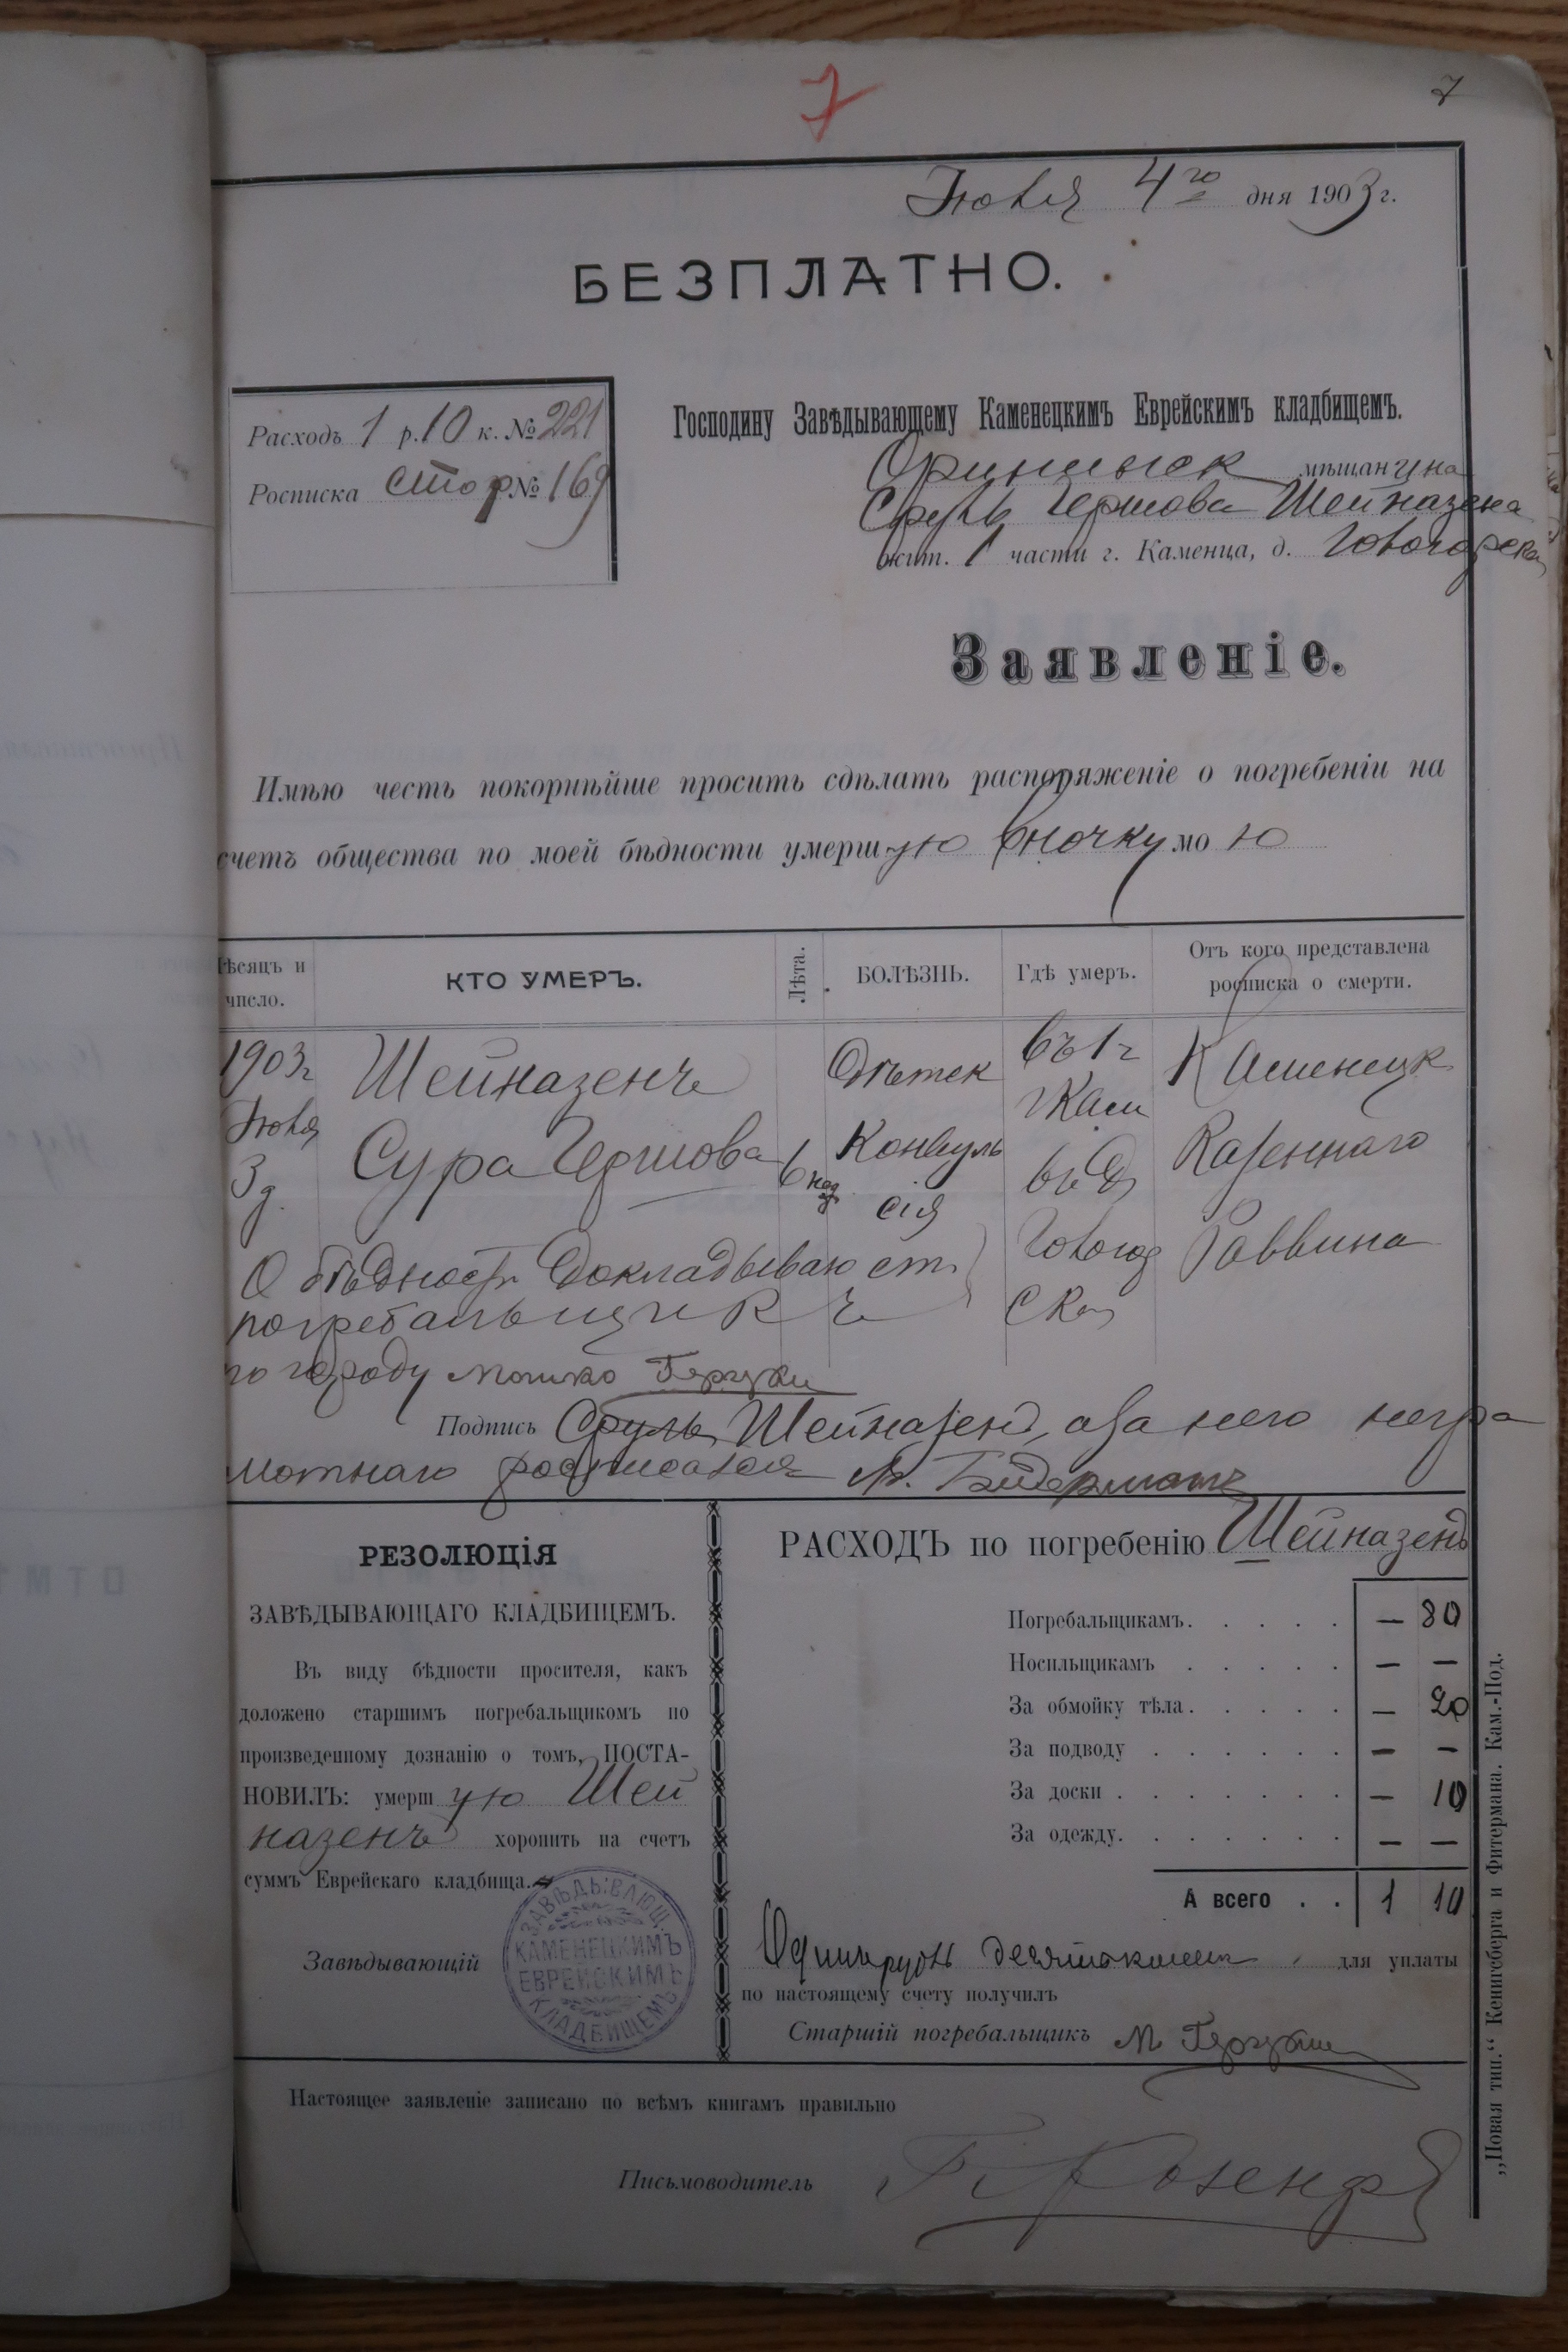 7
7
Іюля 4го дня 1903 г.
БЕЗПЛАТНО.
Расходъ 1 р. 10 к. № 221
Росписка стор № 169
Господину Завѣдывающему Каменецкимъ Еврейскимъ кладбищемъ.
Оринынск мѣщанина
Сруль Гершова Шейназена
жит. 1 части г. Каменца, д.
Заявленіе.
Имѣю честь покорнѣйше просить сдѣлать распоряженіе о погребеніи на
счетъ общества по моей бѣдности умершую вночку мою
Мѣсяцъ и число.
КТО УМЕРЪ.
Лѣта.
БОЛѢЗНЬ.
Гдѣ умеръ.
Отъ кого представлена росписка о смерти.
1903г Іюля 3 д.
Шейназенъ Сура Гершова
6 нед
Дѣтск Конвульсія
въ 1 ч г Кам въ д
Каменецк Казеннаго Раввина
О бѣдности докладываю ст.
погребальщикъ
по городу Мошко
Подпись Сруль Шейназенъ, а за него негра
мотнаго росписался Бидерманъ
РЕЗОЛЮЦІЯ
ЗАВѢДЫВАЮЩАГО КЛАДБИЩЕМЪ.
Въ виду бѣдности просителя, какъ
доложено старшимъ погребальщикомъ по
произведенному дознанію о томъ, ПОСТА-
НОВИЛЪ: умершую Шей
назенъ хоронить на счетъ
суммъ Еврейскаго кладбища.
Завѣдывающій
ЗАВѢДЫВАЮЩ.
КАМЕНЕЦКИМЪ
ЕВРЕЙСКИМЪ
КЛАДБИЩЕМЪ
РАСХОДЪ по погребенію Шейназенъ
Погребальщикамъ. . . . . — 80
Носильщикамъ . . . . . — —
За обмойку тѣла. . . . . — 20
За подводу . . . . . . — —
За доски . . . . . . . — 10
За одежду. . . . . . . — —
А всего . . 1 10
Одинъ рубль десять копеек для уплаты
по настоящему счету получилъ
Старшій погребальщикъ М
Настоящее заявленіе записано по всѣмъ книгамъ правильно
Письмоводитель
„Новая тип.“ Кенигсберга и Фитермана. Кам.-Под.